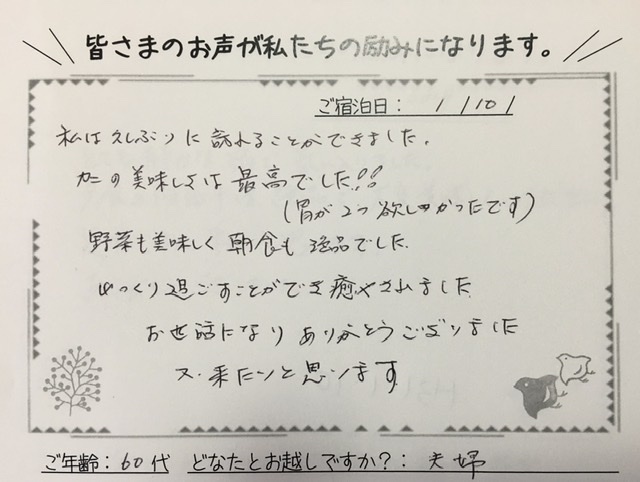 皆さまのお声が私たちの励みになります。
ご宿泊日： 1 / 10 /
私は久しぶりに訪れることができました。
カニの美味しさは最高でした!!
(胃が2つ欲しかったです)
野菜も美味しく朝食も逸品でした
ゆっくり過ごすことができ癒やされました
お世話になりありがとうございました
又、来たいと思います
ご年齢：60代 どなたとお越しですか？：夫婦